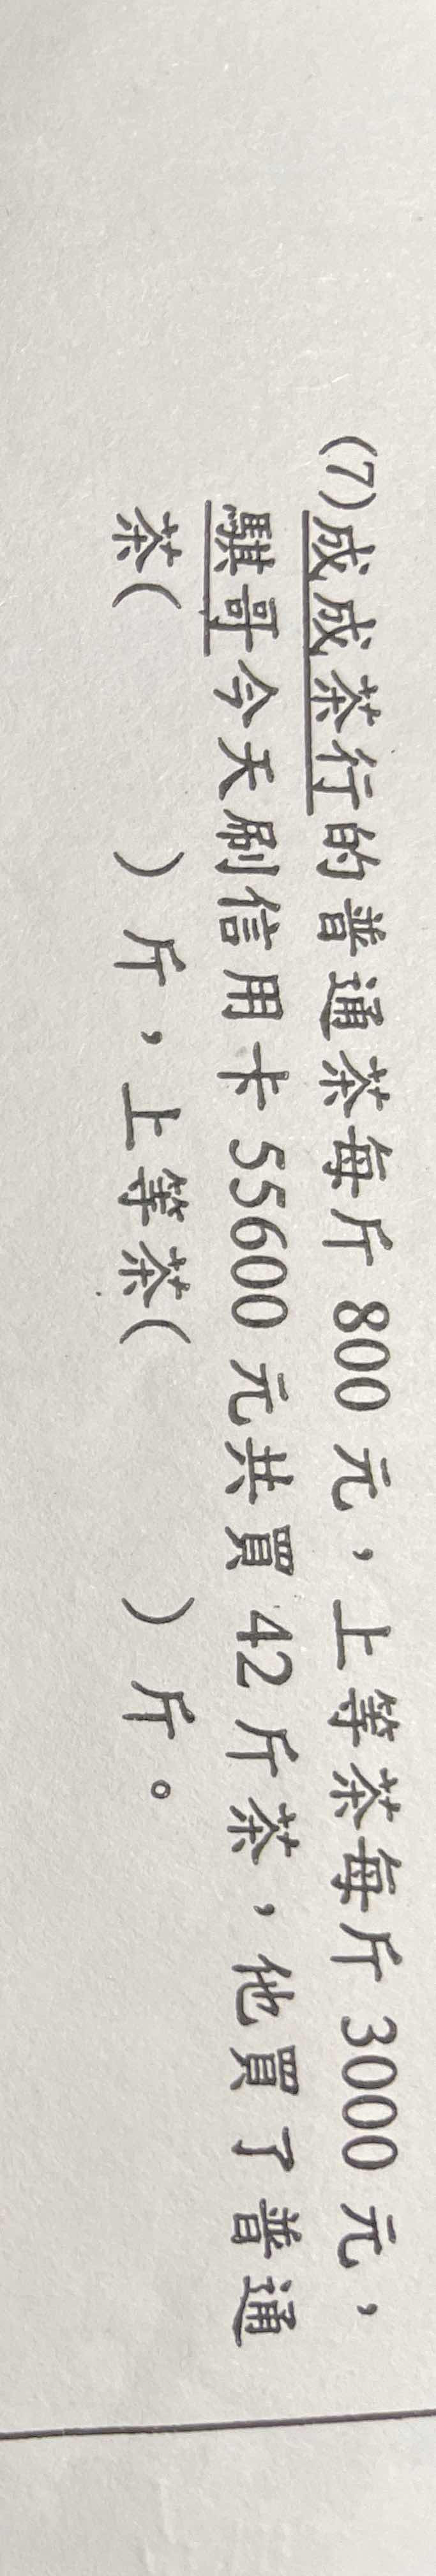 (7)成成茶行的普通茶每斤 800 元，上等茶每斤 3000 元，
騏哥今天刷信用卡 55600 元共買 42 斤茶，他買了普通
茶( ) 斤，上等茶( ) 斤。